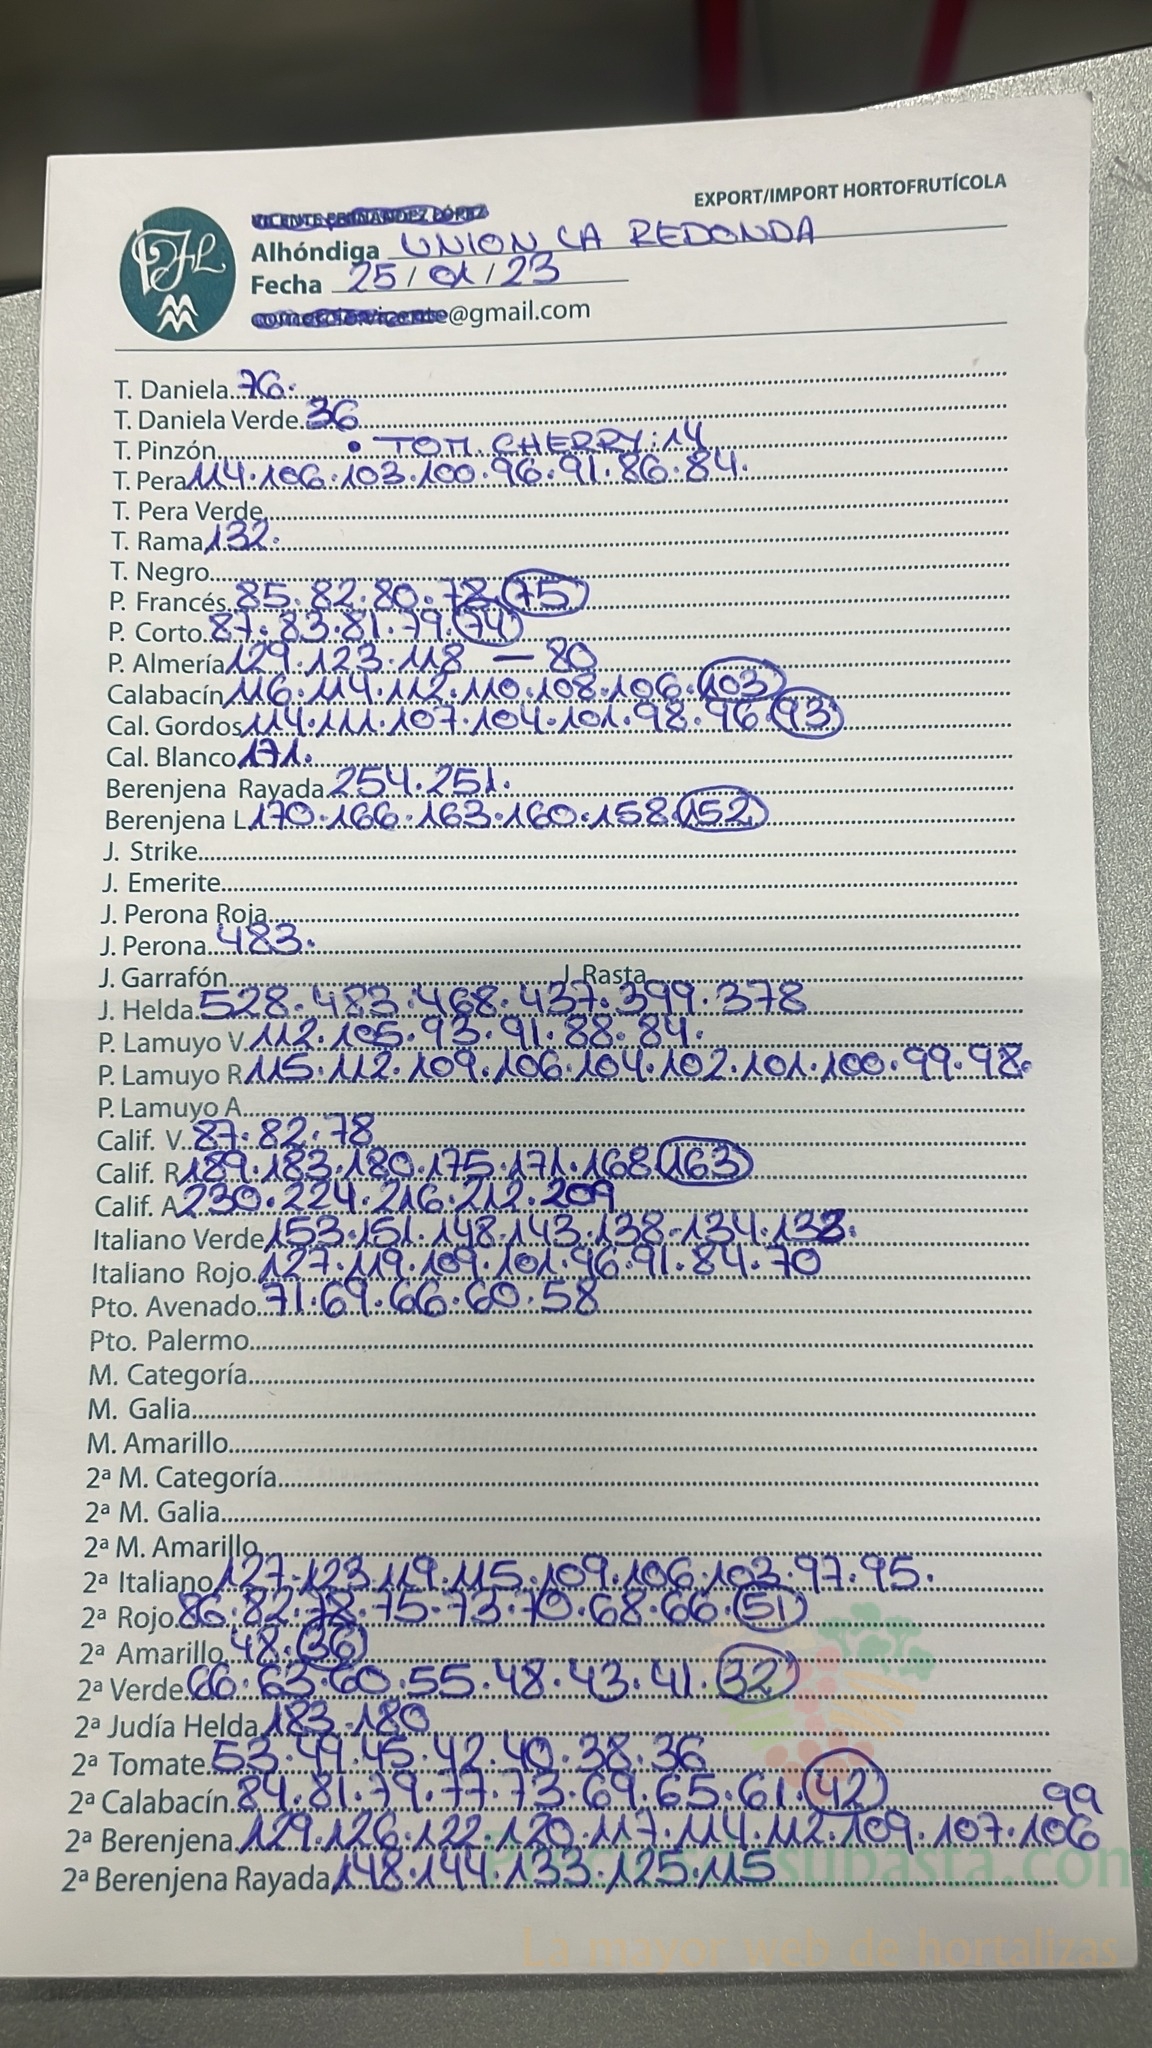 EXPORT/IMPORT HORTOFRUTÍCOLA
VICENTE FERNANDEZ LÓPEZ
Alhóndiga UNION LA REDONDA
Fecha 25/01/23
@gmail.com
T. Daniela 76.
T. Daniela Verde 36
T. Pinzón • TOM. CHERRY: 14
T. Pera 114.106.103.100.96.91.86.84.
T. Pera Verde
T. Rama 132.
T. Negro
P. Francés 85.82.80.78.75
P. Corto 87.83.81.79.74
P. Almería 129.123.118 — 80
Calabacín 116.114.112.110.108.106.103
Cal. Gordos 114.111.107.104.101.98.96.93
Cal. Blanco 171.
Berenjena Rayada 254.251.
Berenjena L 170.166.163.160.158.152
J. Strike
J. Emerite
J. Perona Roja
J. Perona 483.
J. Garrafón J. Rasta
J. Helda 528.483.468.437.399.378
P. Lamuyo V. 112.105.93.91.88.84.
P. Lamuyo R 115.112.109.106.104.102.101.100.99.98.
P. Lamuyo A
Calif. V. 87.82.78
Calif. R 189.183.180.175.171.168.163
Calif. A 230.224.216.212.209
Italiano Verde 153.151.148.143.138.134.132.
Italiano Rojo 127.119.109.101.96.91.84.70
Pto. Avenado 71.69.66.60.58
Pto. Palermo
M. Categoría
M. Galia
M. Amarillo
2ª M. Categoría
2ª M. Galia
2ª M. Amarillo
2ª Italiano 127.123.119.115.109.106.103.97.95.
2ª Rojo 86.82.78.75.73.70.68.66.51
2ª Amarillo 48.36
2ª Verde 66.63.60.55.48.43.41.32
2ª Judía Helda 183.180
2ª Tomate 53.49.45.42.40.38.36
2ª Calabacín 84.81.79.77.73.69.65.61.42
99
2ª Berenjena 129.126.122.120.117.114.112.109.107.106
2ª Berenjena Rayada 148.144.133.125.115
subasta.com
La mayor web de hortalizas